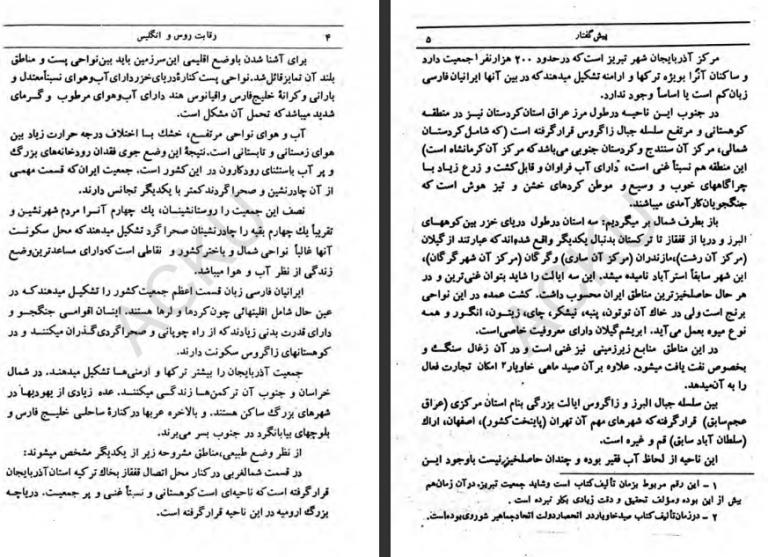 ۴ رقابت روس و انگلیس
برای آشنا شدن باوضع اقلیمی این‌سرزمین باید بین‌نواحی پست و مناطق
بلند آن تمایز قائل‌شد.نواحی پست کنارهٔ‌دریای‌خزردارای‌آب‌وهوای نسبتاًمعتدل و
بارانی وکرانهٔ خلیج‌فارس واقیانوس هند دارای آب‌وهوای مرطوب و گرمای
شدید میباشدکه تحمل آن مشکل است.
آب و هوای نواحی مرتفـع، خشك بـا اختلاف درجه حرارت زیاد بین
هوای زمستانی و تابستانی است.نتیجهٔ این وضع جوی فقدان رودخانه‌های بزرگ
و پر آب باستثنای رودکارون در این‌کشور است. جمعیت ایران‌که قسمت مهمی
از آن چادرنشین و صحراگردند‌کمتر با یکدیگر تجانس دارند.
نصف این جمعیت را روستانشینـان، یك چهارم آنـرا مردم شهرنشین و
تقریباً یك‌چهارم بقیه را چادرنشینان صحراگرد تشکیل میدهندکه محل سکونت
آنها غالبـاً نواحی شمال و باخترکشور و نقاطی است‌که‌دارای مساعدترین‌وضع
زندگی از نظر آب و هوا میباشد.
ایرانیان فارسی زبان قسمت اعظم جمعیت‌کشور را تشکیـل میدهندکـه در
عین حال شامل اقلیتهائی چون‌کردها و لرها هستند. اینـان اقوامـی جنگجـو و
دارای قدرت بدنی زیادندکه از راه چوپانی و صحراگردی‌گـذران میکننـد و در
کوهستانهای زاگروس سکونت دارند.
جمعیت آذربایجان را بیشتر ترکها و ارمنی‌ها تشکیل میدهنـد. در شمال
خراسان و جنوب آن ترکمن‌ها زندگـی میکننـد. عده زیادی از یهودیهـا در
شهرهای بزرگ ساکن هستند. و بالاخره عربها درکنارهٔ ساحلـی خلیـج فارس و
بلوچهای بیابانگرد در جنوب بسر می‌برند.
از نظر وضع طبیعی،مناطق مشروحه زیر از یکدیگر مشخص میشوند:
در قسمت شمالغربی درکنار محل اتصال قفقاز بخاك ترکیه استان‌آذربایجان
قرارگرفته است‌که ناحیه‌ای است‌کوهستانی و نسبتاً غنی و پر جمعیت. دریاچـه
بزرگ ارومیه در این ناحیه قرارگرفته است.
پیش‌گفتار ۵
مرکز آذربایجان شهر تبریز است‌که درحدود ۲۰۰ هزارنفر۱ جمعیت دارد
و ساکنان آنرا بویژه ترکهـا و ارامنه تشکیل میدهندکه در بین آنها ایرانیان فارسی
زبان‌کم است یا اساساً وجود ندارد.
در جنوب ایـن ناحیـه درطول مرز عراق استان‌کردستان نیـز در منطقـه
کوهستانی و مرتفع سلسله جبال زاگروس قرارگرفته است (که شامل‌کردستـان
شمالی، مرکز آن سنندج وکردستان جنوبی می‌باشدکه مرکز آن‌کرمانشاه است)
این منطقه هم نسبتاً غنی است، دارای آب فراوان و قابل‌کشت و زرع زیـاد بـا
چراگاههای خوب و وسیـع و موطن کردهای خشن و تیز هوش است که
جنگجویان‌کارآمدی میباشند.
باز بطرف شمال بر میگردیم: سه استان درطول دریای خزر بین‌کوههای
البرز و دریا از قفقاز تا ترکستان بدنبال یکدیگر واقع شده‌اندکه عبارتند ازگیلان
(مرکز آن رشت)،مازندران (مرکز آن ساری) وگرگان (مرکز آن شهرگرگان)،
این شهر سابقاً استرآباد نامیده میشد. این سه ایالت را شاید بتوان غنی‌ترین و در
هر حال حاصلخیزترین مناطق ایران محسوب داشت. کشت عمده در این نواحی
برنج است‌ولی در خاك آن توتون، پنبه، نیشکر، چای، زیتـون، انگـور و همه
نوع میوه بعمل می‌آید. ابریشم‌گیلان دارای معروفیت خاصی‌است.
در این مناطق منابـع زیرزمینی نیز غنی است و در آن زغال سنگـی و
بخصوص نفت یافت میشود. علاوه برآن صید ماهی خاویار۲ امکان تجارت فعال
را به آن‌میدهد.
بین سلسله جبال البرز و زاگروس ایالت بزرگی بنام استان مرکزی (عراق
عجم‌سابق) قرارگرفته‌که شهرهای مهم آن تهران (پایتخت‌کشور)، اصفهان، اراك
(سلطان آباد سابق) قم و غیره است.
این ناحیه از لحاظ آب فقیر بوده و چندان حاصلخیزنیست باوجود ایـن
۱ – این رقم مربوط بزمان تألیف‌کتاب است وشاید جمعیت تبریز،درآن زمان‌هم
بیش از این بوده ومؤلف تحقیق و دقت زیادی بکار نبرده است.
۲ – درزمان‌تألیف‌کتاب صیدخاویاردر انحصاردولت اتحادجماهیر شوروی‌بوده‌است.
ACKU
ACKU